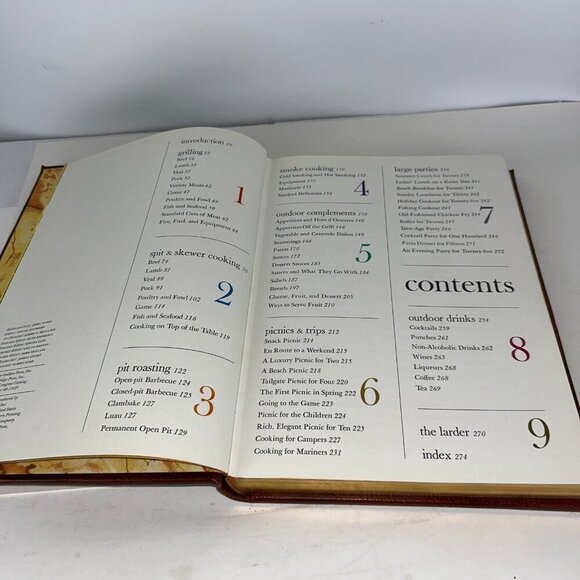 introduction 10
grilling 13
Beef 16
Lamb 31
Veal 37
Pork 37
Variety Meats 42
Game 47
Poultry and Fowl 49
Fish and Seafood 59
Standard Cuts of Meat 62
Fire, Fuel, and Equipment 64
1
spit & skewer cooking 70
Beef 74
Lamb 81
Veal 88
Pork 91
Poultry and Fowl 102
Game 114
Fish and Seafood 116
Cooking on Top of the Table 119
2
pit roasting 122
Open-pit Barbecue 124
Closed-pit Barbecue 125
Clambake 127
Luau 127
Permanent Open Pit 129
3
smoke cooking 130
Cold Smoking and Hot Smoking 132
Equipment 133
Marinade 135
Smoked Delicacies 136
4
outdoor complements 138
Appetizers and Hors d'Oeuvres 140
Appetizers Off the Grill 146
Vegetable and Casserole Dishes 149
Seasonings 166
Pastas 170
Sauces 172
Dessert Sauces 183
Sauces and What They Go With 184
Salads 182
Breads 197
Cheese, Fruit, and Dessert 205
Ways to Serve Fruit 210
5
picnics & trips 212
Snack Picnic 214
En Route to a Weekend 215
A Luxury Picnic for Two 215
A Beach Picnic 218
Tailgate Picnic for Four 220
The First Picnic in Spring 222
Going to the Game 223
Picnic for the Children 224
Rich, Elegant Picnic for Ten 225
Cooking for Campers 227
Cooking for Mariners 231
6
large parties 236
Summer Lunch for Twenty
Ladies' Lunch on a Rainy Day 241
Beach Breakfast for Twenty 241
Sunday Luncheon for Thirty 242
Holiday Cookout for Twenty-five
Fishing Cookout 243
Old-Fashioned Chicken Fry 244
Buffet for Twenty 245
Teen-Age Party
Cocktail Party for One Hundred 246
Patio Dinner for Fifteen 251
An Evening Party for Twenty-five 252
7
contents
outdoor drinks 254
Cocktails 259
Punches 261
Non-Alcoholic Drinks 262
Wines 263
Liqueurs 268
Coffee 268
Tea 269
8
the larder 270
index 274
9